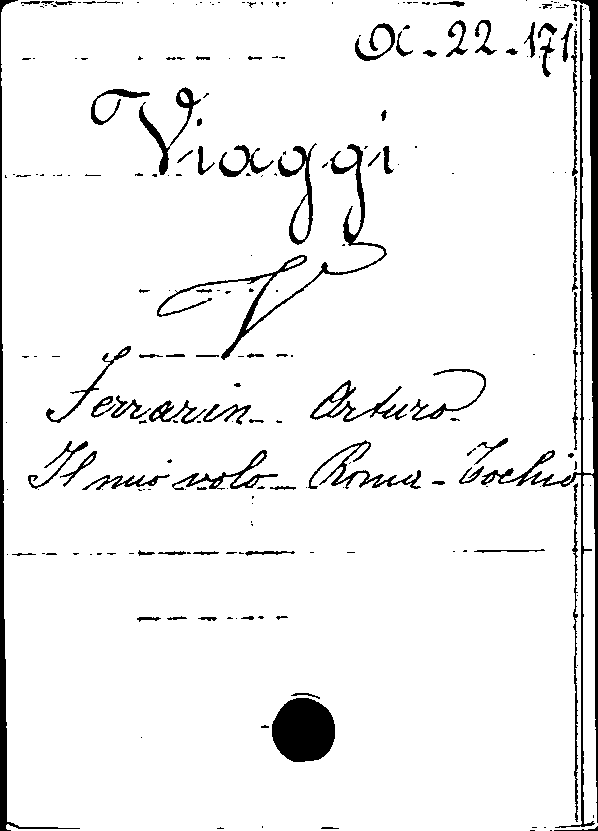 α-22-171
Viaggi
V
Ferrarin Arturo
Il mio volo Roma-Tochio